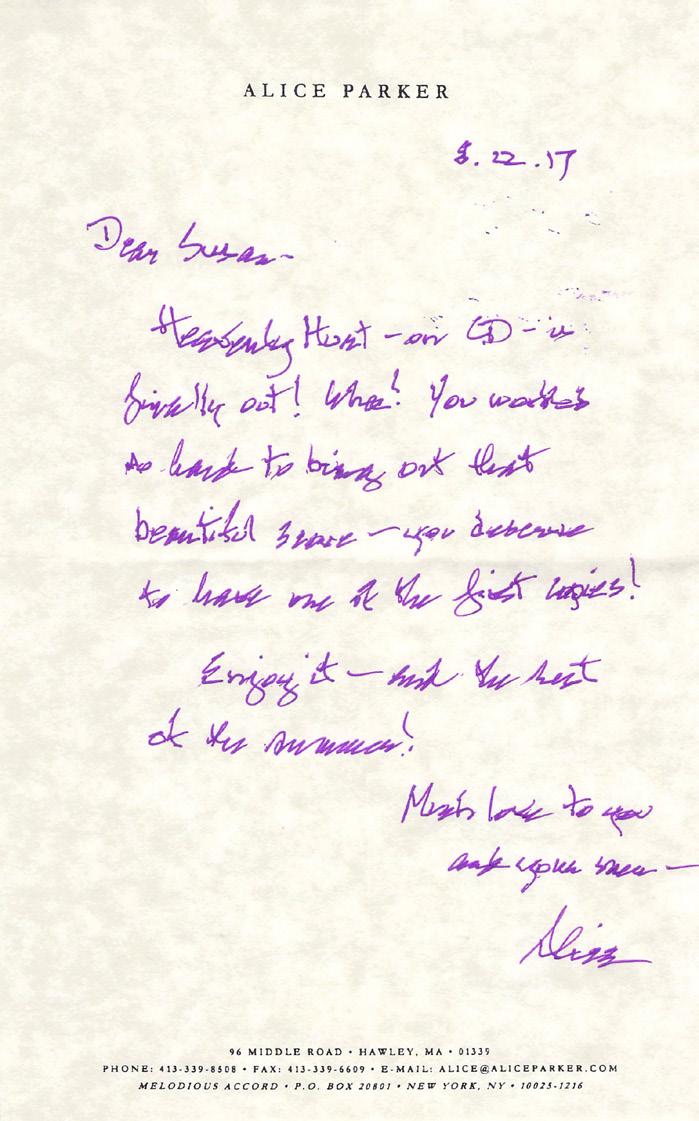 ALICE PARKER
8.22.17
Dear Susan—
Heavenly Hurt — on CD — is
finally out! Whee! You worked
so hard to bring out that
beautiful score — you deserve
to have one of the first copies!
Enjoy it — and the rest
of the summer!
Much love to you
and your men —
Alice
96 MIDDLE ROAD • HAWLEY, MA • 01339
PHONE: 413-339-8508 • FAX: 413-339-6609 • E-MAIL: ALICE@ALICEPARKER.COM
MELODIOUS ACCORD • P.O. BOX 20801 • NEW YORK, NY • 10025-1216